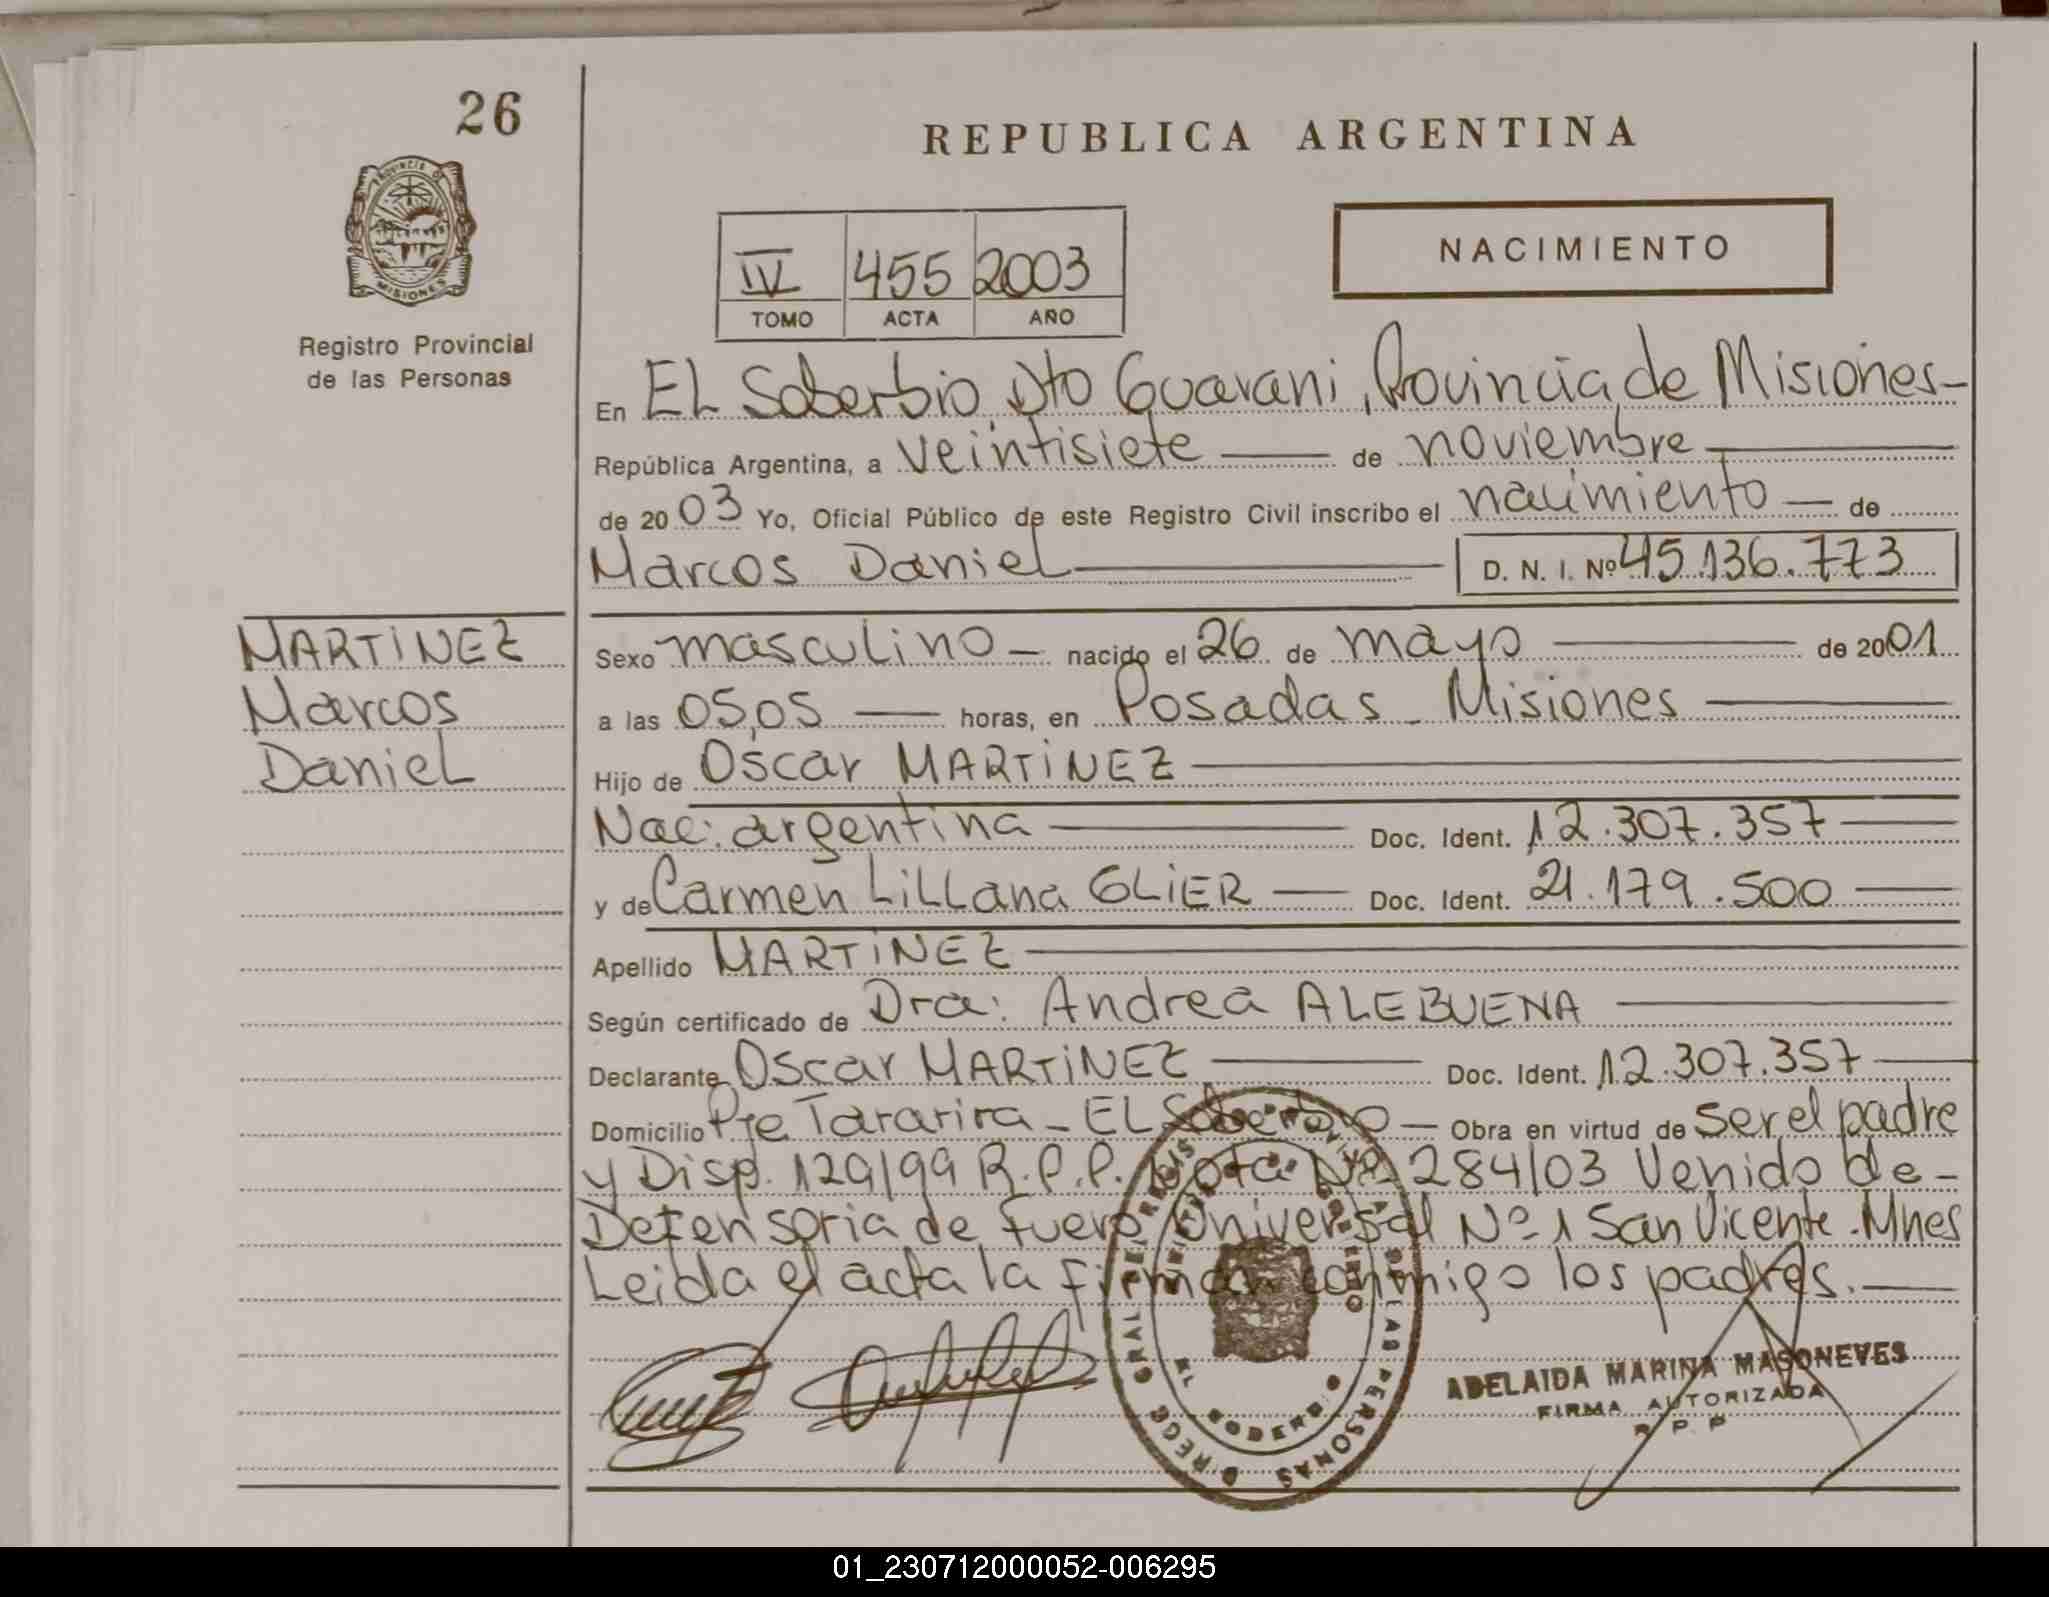 26
REPUBLICA ARGENTINA
PROVINCIA DE
MISIONES
NACIMIENTO
IV 455 2003
TOMO ACTA AÑO
Registro Provincial
de las Personas
En EL Soberbio Dto Guarani, Provincia de Misiones-
República Argentina, a veintisiete de noviembre
de 2003 Yo, Oficial Público de este Registro Civil inscribo el nacimiento de
Marcos Daniel D. N. I. Nº 45.136.773
MARTINEZ
Marcos
Daniel
Sexo masculino nacido el 26 de mayo de 2001
a las 05,05 horas, en Posadas - Misiones
Hijo de Oscar MARTINEZ
Nac: argentina Doc. Ident. 12.307.357
y de Carmen LiLLana GLIER Doc. Ident. 21.179.500
Apellido MARTINEZ
Según certificado de Dra: Andrea ALEBUENA
Declarante Oscar MARTINEZ Doc. Ident. 12.307.357
Domicilio Pje Tararira - EL Soberbio Obra en virtud de ser el padre
y Disp. 129/99 R.P.P. Nota Nº 284/03 Venido de-
Defensoria de fuero Universal Nº 1 San Vicente. Mnes
Leida el acta la firman conmigo los padres.
ADELAIDA MARINA MASONEVES
FIRMA AUTORIZADA
R P P
01_230712000052-006295